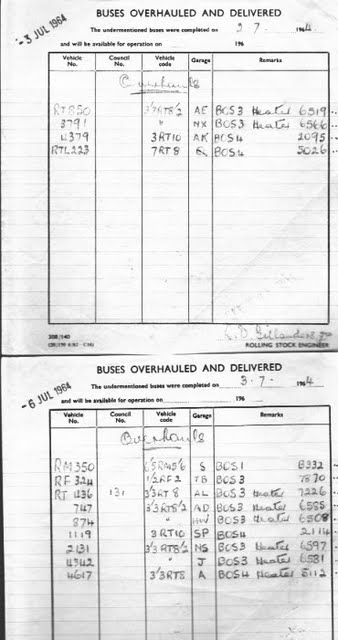 BUSES OVERHAULED AND DELIVERED
-3 JUL 1964
The undermentioned buses were completed on 3 - 7 - 1964
and will be available for operation on 196
Vehicle No. Council No. Vehicle code Garage Remarks
Overhauls
RT 850 3/3RT8/2 AE BOS3 Heater 6519
3791 " NX BOS3 Heater 6566
4379 3RT10 AK BOS4 2095
RTL223 7RT8 BOS4 5026
ROLLING STOCK ENGINEER
BUSES OVERHAULED AND DELIVERED
-6 JUL 1964
The undermentioned buses were completed on 3 - 7 - 1964
and will be available for operation on 196
Vehicle No. Council No. Vehicle code Garage Remarks
Overhauls
RM350 S BOS1 8332
RF 324 1/2RF2 TB BOS3 7870
RT 1436 131 3/3RT8 AL BOS3 Heater 7226
747 3/3RT8/2 AD BOS3 Heater 6555
874 " HW BOS3 Heater 6508
1119 3RT10 SP BOS4 2114
2131 3/3RT8/2 NS BOS3 Heater 6597
4342 " J BOS3 Heater 6581
4617 3/3RT8 A BOS4 Heater 5112